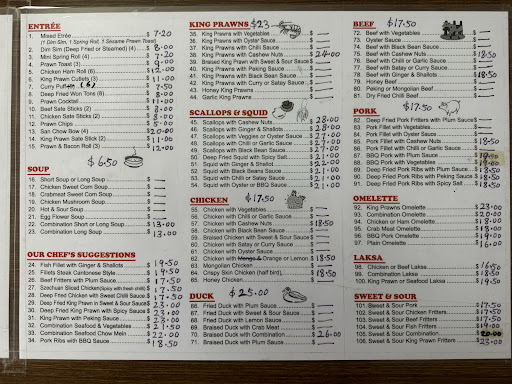 ENTRÉE
1. Mixed Entrée $ 7·20
(1 Dim Sim, 1 Spring Roll, 1 Sesame Prawn Toast)
2. Dim Sim (Deep Fried or Steamed) (4) $ 8·00
3. Mini Spring Roll (4) $ 7·20
4. Prawn Toast (3) $ 9·00
5. Chicken Ham Roll (6) $ 12·00
6. King Prawn Cutlets (3) $ 11·00
7. Curry Puff (6) $ 7·50
8. Deep Fried Won Tons (8) $ 8·00
9. Prawn Cocktail $ 11·00
10. Beef Sate Sticks (2) $ 8·00
11. Chicken Sate Sticks (2) $ 8·00
12. Prawn Chips $ 5·00
13. San Chow Bow (4) $ 20·00
14. King Prawn Sate Stick (2) $ 11·00
15. Prawn & Bacon Roll (3) $ 12·00
$ 6·50
SOUP
16. Short Soup or Long Soup $ —
17. Chicken Sweet Corn Soup $ —
18. Crabmeat Sweet Corn Soup $ —
19. Chicken Mushroom Soup $ —
20. Hot & Sour Soup $ —
21. Egg Flower Soup $ —
22. Combination Short or Long Soup $ 13·00
23. Combination Long Soup $ 13·00
OUR CHEF'S SUGGESTIONS
24. Fish Fillet with Ginger & Shallots $ 19·50
25. Fillets Steak Cantonese Style $ 19·50
26. Beef Fritters with Plum Sauce $ 17·50
27. Szechuan Sliced Chicken(spicy with fresh chilli) $ 17·50
28. Deep Fried Chicken with Sweet Chilli Sauce $ 17·50
29. Deep Fried King Prawn in Sweet & Sour Sauce $ 23·00
30. Deep Fried King Prawn with Spicy Sauce $ 23·00
31. King Prawn with Peking Sauce $ 23·00
32. Combination Seafood & Vegetables $ 21·50
33. Combination Seafood Chow Mein $ 22·00
34. Pork Ribs with BBQ Sauce $ 18·50
KING PRAWNS $23
35. King Prawns with Vegetables $ —
36. King Prawns with Oyster Sauce $ —
37. King Prawns with Chilli Sauce $ —
38. King Prawns with Cashew Nuts $ 24·00
39. Braised King Prawn with Sweet & Sour Sauce $ —
40. King Prawns with Peking Sauce $ —
41. King Prawns with Black Bean Sauce $ —
42. King Prawns with Curry or Satay Sauce $ —
43. Honey King Prawns $ —
44. Garlic King Prawns $ —
SCALLOPS & SQUID
45. Scallops with Cashew Nuts $ 28·00
46. Scallops with Ginger & Shallots $ 28·00
47. Scallops with Veggies or Oyster Sauce $ 27·00
48. Scallops with Chilli or Garlic Sauce $ 27·00
49. Scallops with Black Bean Sauce $ 27·00
50. Deep Fried Squid with Spicy Salt $ 21·00
51. Squid with Ginger & Shallot $ 22·00
52. Squid with Black Bean Sauce $ 21·00
53. Squid with Chilli or Satay Sauce $ 21·00
54. Squid with Oyster or BBQ Sauce $ 21·00
CHICKEN $17·50
55. Chicken with Vegetables $ —
56. Chicken with Chilli or Garlic Sauce $ —
57. Chicken with Cashew Nuts $ 18·50
58. Chicken with Black Bean Sauce $ —
59. Braised Chicken with Sweet & Sour Sauce $ —
60. Chicken with Satay or Curry Sauce $ —
61. Chicken with Oyster Sauce $ —
62. Chicken with Mango & Orange or Lemon $ 18·50
63. Mongolian Chicken $ —
64. Crispy Skin Chicken (half bird) $ 18·50
65. Honey Chicken $ —
DUCK $25·00
66. Fried Duck with Plum Sauce $ —
67. Fried Duck with Sweet & Sour Sauce $ —
68. Fried Duck with Lemon Sauce $ —
69. Braised Duck with Crab Meat $ —
70. Braised Duck with Combination $ 26·00
71. Braised Duck with Plum Sauce $ —
BEEF $17·50
72. Beef with Vegetables $ —
73. Oyster Sauce $ —
74. Beef with Black Bean Sauce $ —
75. Beef with Cashew Nuts $ 18·50
76. Beef with Chilli or Garlic Sauce $ —
77. Beef with Satay or Curry Sauce $ —
78. Beef with Ginger & Shallots $ 18·50
79. Honey Beef $ —
80. Peking or Mongolian Beef $ —
81. Dry Fried Chilli Beef $ —
PORK $17·50
82. Deep Fried Pork Fritters with Plum Sauce $ —
83. Pork Fillet with Vegetables $ —
84. Pork Fillet with Oyster Sauce $ —
85. Pork Fillet with Cashew Nuts $ 18·50
86. Pork Fillet with Chilli or Garlic Sauce $ —
87. BBQ Pork with Plum Sauce $
88. BBQ Pork with Vegetables $
89. Deep Fried Pork Ribs with Plum Sauce $ 18·50
90. Deep Fried Pork Ribs with Peking Sauce $ 18·50
91. Deep Fried Pork Ribs with Spicy Salt $ 18·50
OMELETTE
92. King Prawns Omelette $ 23·00
93. Combination Omelette $ 20·00
94. Chicken or Ham Omelette $ 18·00
95. Crab Meat Omelette $ 18·00
96. BBQ Pork Omelette $ 19·00
97. Plain Omelette $ 16·00
LAKSA
98. Chicken or Beef Laksa $ 16·50
99. Combination Laksa $ 18·50
100. King Prawn or Seafood Laksa $ 19·50
SWEET & SOUR
101. Sweet & Sour Pork $ 17·50
102. Sweet & Sour Chicken Fritters $ 17·50
103. Sweet & Sour Beef Fritters $ 17·50
104. Sweet & Sour Fish Fritters $ 19·00
105. Sweet & Sour Combination $ 20·00
106. Sweet & Sour King Prawn Fritters $ 23·00